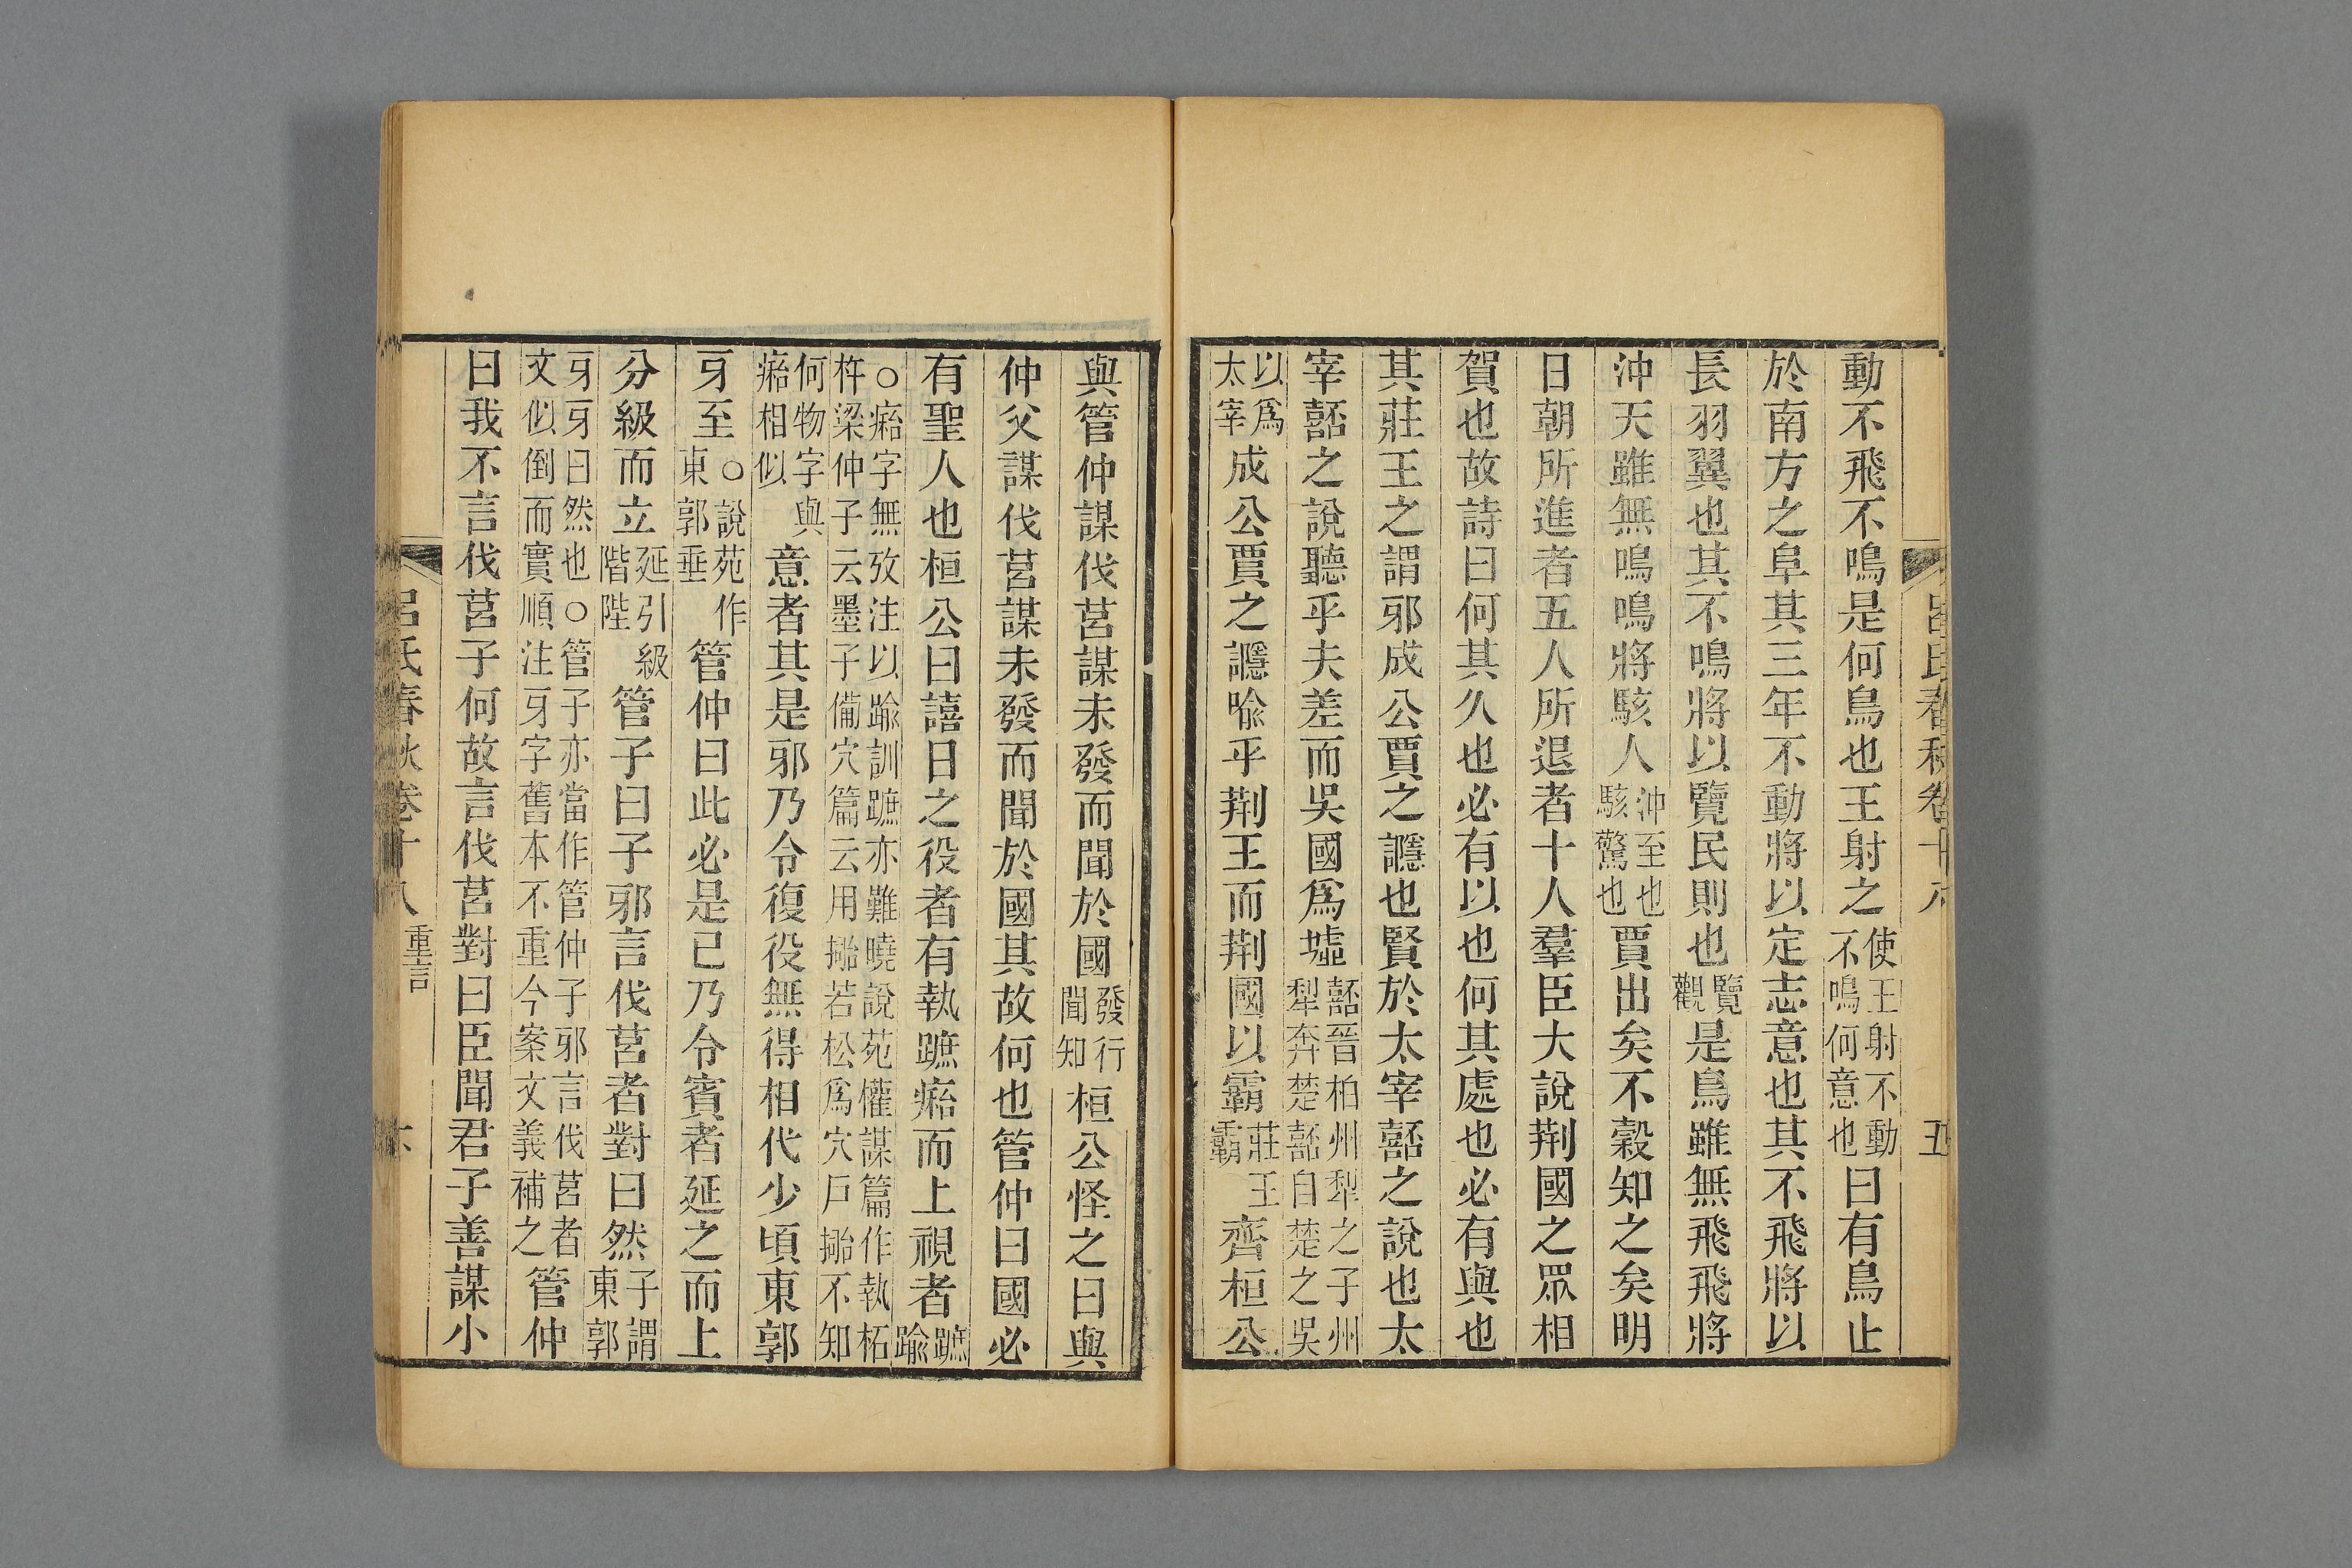 呂氏春秋卷十八 五
動不飛不鳴是何鳥也王射之使王射不動不鳴何意也曰有鳥止
於南方之阜其三年不動將以定志意也其不飛將以
長羽翼也其不鳴將以覽民則也覽觀是鳥雖無飛飛將
沖天雖無鳴鳴將駭人沖至也駭驚也賈出矣不穀知之矣明
日朝所進者五人所退者十人羣臣大說荆國之眾相
賀也故詩曰何其久也必有以也何其處也必有與也
其莊王之謂邪成公賈之讔也賢於太宰嚭之說也太
宰嚭之說聽乎夫差而吳國爲墟嚭晉柏州犁之子州犁奔楚嚭自楚之吳
以爲太宰成公賈之讔喻乎荆王而荆國以霸莊王霸齊桓公
與管仲謀伐莒謀未發而聞於國發行聞知桓公怪之曰與
仲父謀伐莒謀未發而聞於國其故何也管仲曰國必
有聖人也桓公曰譆日之役者有執蹠而上視者蹠踰
○字無攷注以踰訓蹠亦難曉說苑權謀篇作執柘杵梁仲子云墨子備穴篇云用若松爲穴戶不知
何物字與相似意者其是邪乃令復役無得相代少頃東郭
牙至○說苑作東郭垂管仲曰此必是已乃令賓者延之而上
分級而立延引級階陛管子曰子邪言伐莒者對曰然子謂東郭
牙牙曰然也○管子亦當作管仲子邪言伐莒者文似倒而實順注牙字舊本不重今案文義補之管仲
曰我不言伐莒子何故言伐莒對曰臣聞君子善謀小
呂氏春秋卷十八 重言